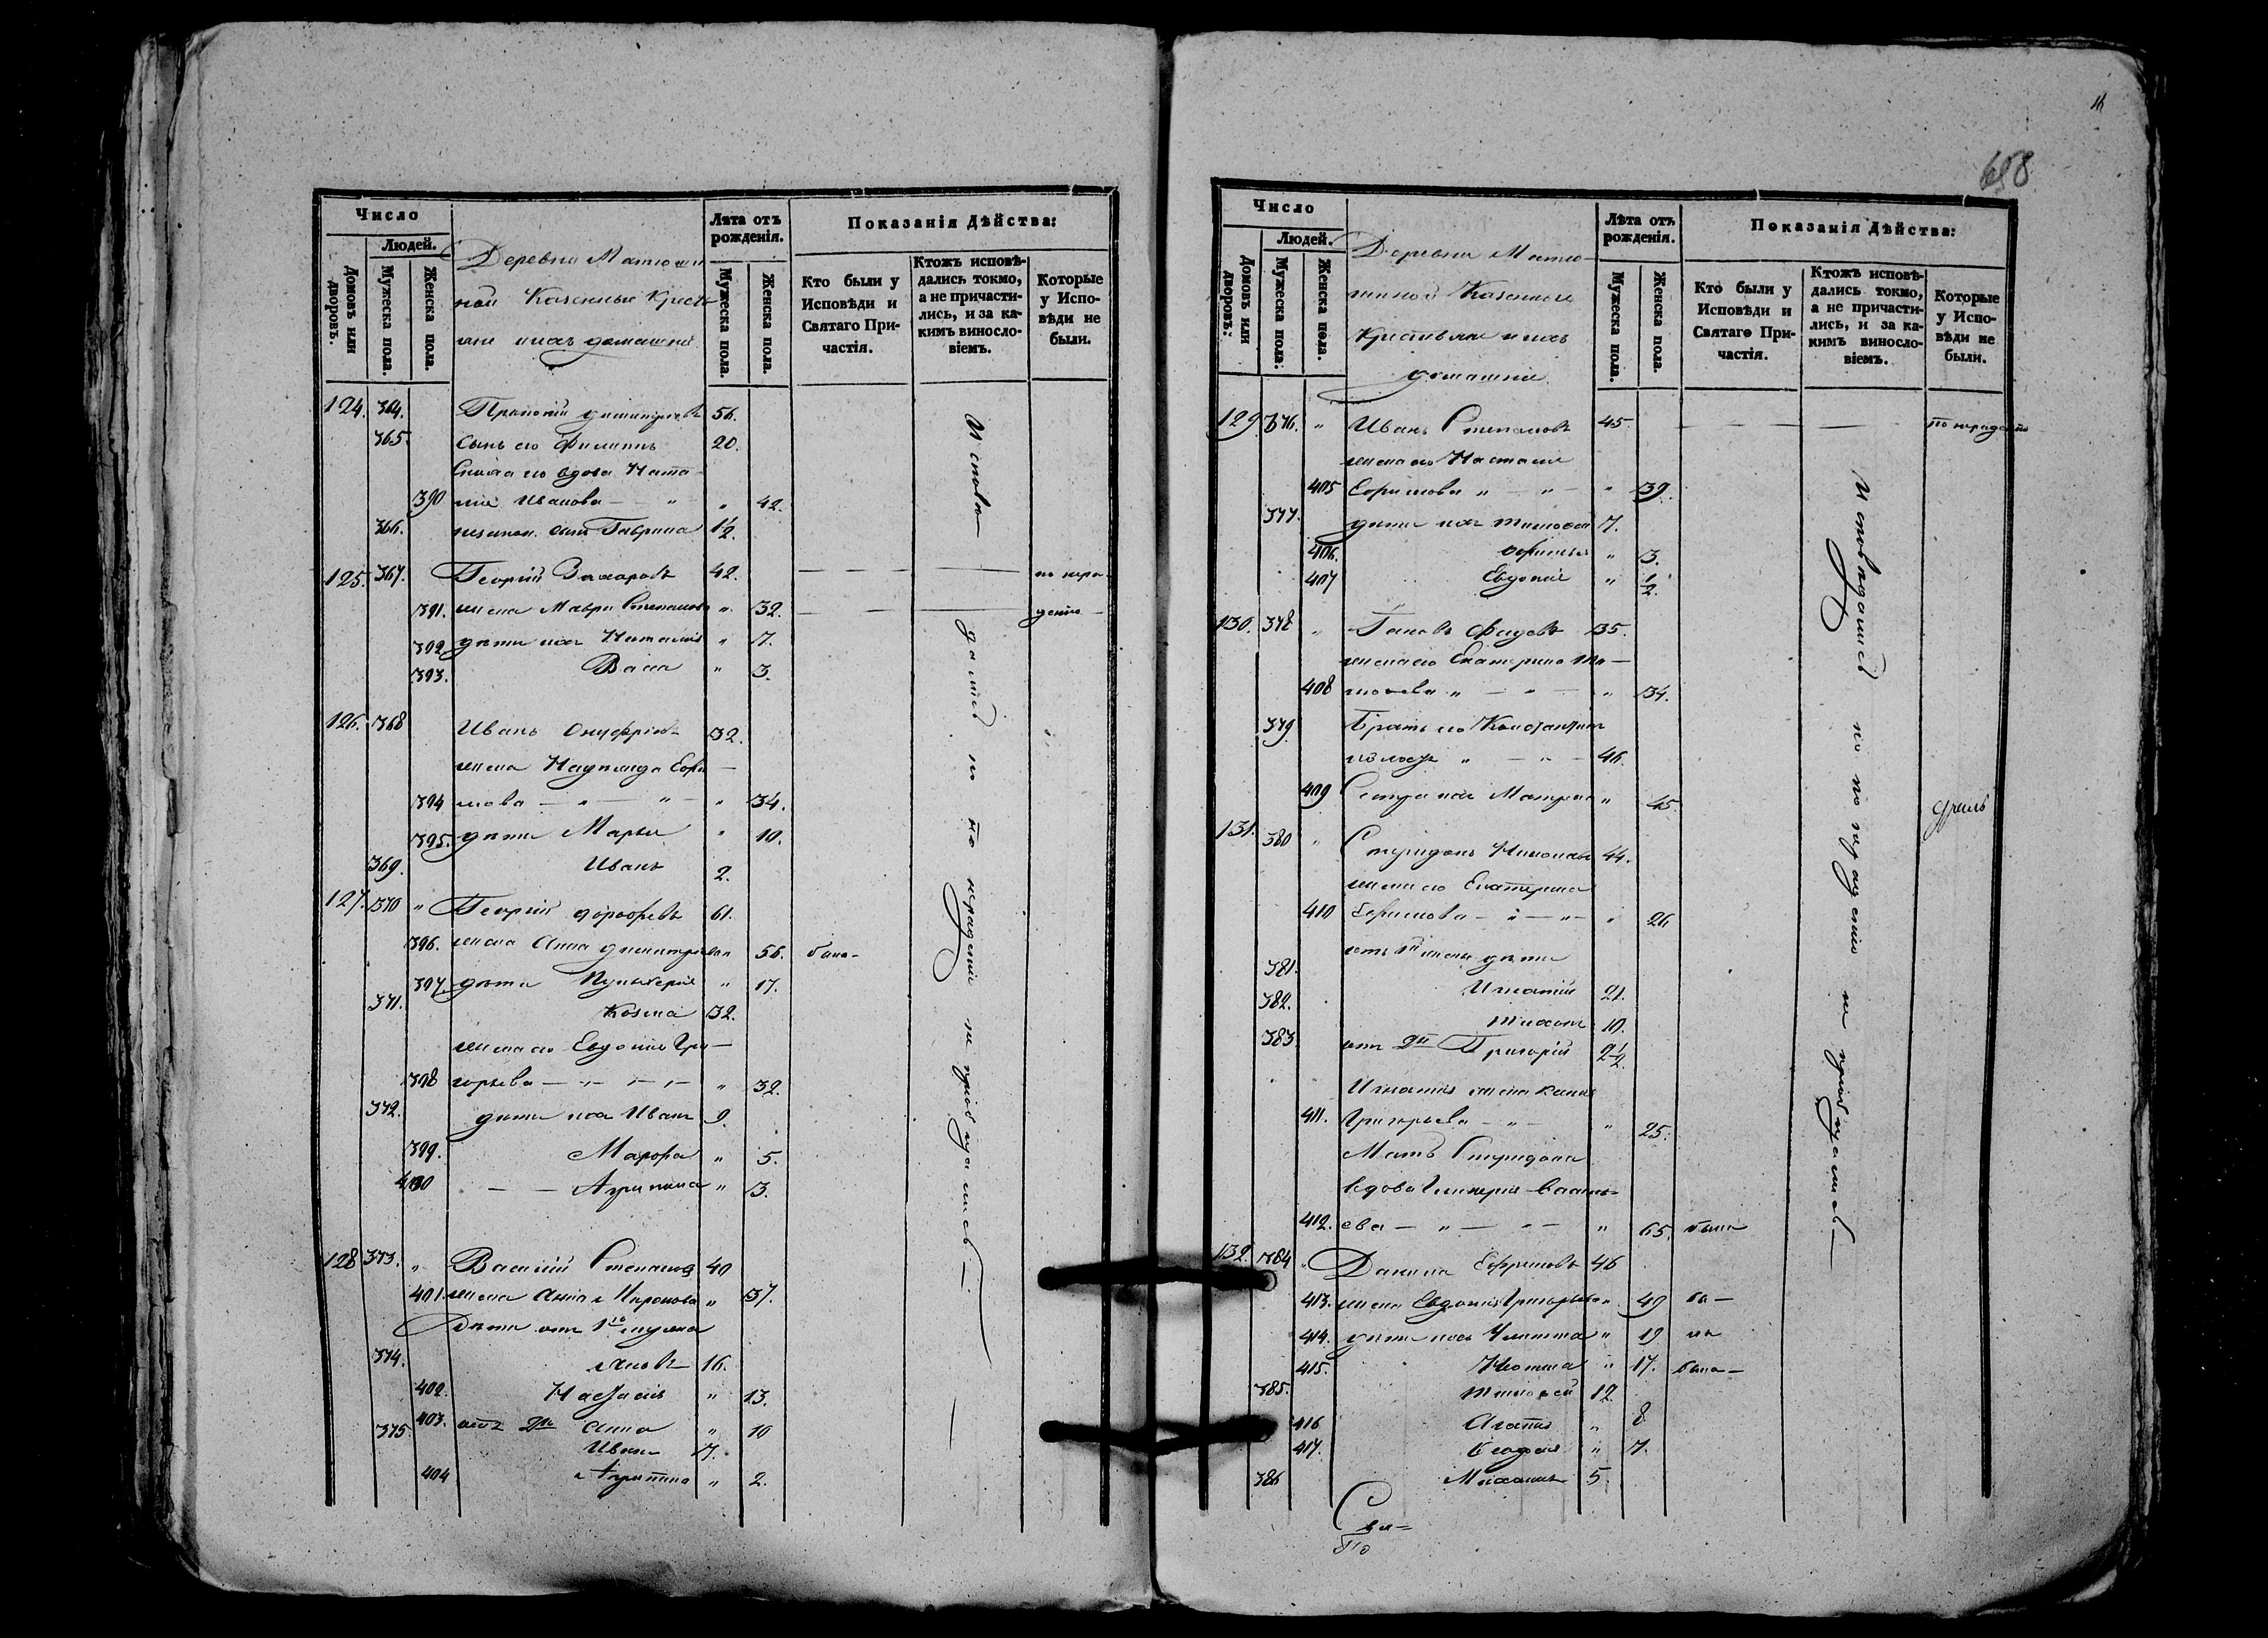 Число
Людей.
Домовъ или дворовъ.
Мужеска пола.
Женска пола.
Деревни Матюши
ной Казенные Кресть
яне и ихъ домашніи
Лѣта отъ рожденія.
Мужеска пола.
Женска пола.
Показанія Дѣйства:
Кто были у Исповѣди и Святаго Причастія.
Ктожъ исповѣдались токмо, а не причастились, и за какимъ винословіемъ.
Которые у Исповѣди не были.
124. 364. 56.
365. Сынъ его Филиппъ 20.
вдова Ната
390 лія Иванова — " — " 42.
366. незакон. сынъ Гаврила 1½
125. 367. Георгій Захаровъ 42. — — — по нера-
391. жена Мавра Степанова " 32. — — — дѣнію
392. дѣти ихъ Наталія " 7.
393. Васса " 3.
126. 368 Иванъ Онуфріевъ 32.
жена Надежда Ефи—
394 мова — " — " — " 34.
395. дѣти Марья " 10.
369. Иванъ 2.
127. 370 " Георгій 61.
396. жена Анна Димитріева 56. была-
397. дѣти Пульхерія " 17.
371. Козма 32.
жена его Евдокія Гри—
398 горьева — " 32.
372. дѣти ихъ Иванъ 9.
399. Марфа " 5.
400 — — Агрипина " 3.
128 373. " Василій Степановъ 40
401. жена Анна Миронова " 37.
Дѣти отъ 1го мужа
374. Яковъ 16.
402. Настасія " 13.
403. отъ 2го Анна " 10
375 Иванъ 7.
404 Агрипина " 2.
Исповѣдались но по нерадѣнію не пріобщались—
658
Число
Людей.
Домовъ или дворовъ.
Мужеска пола.
Женска пола.
Деревни Матю-
шиной Казенные
Крестьяне и ихъ
домашніи
Лѣта отъ рожденія.
Мужеска пола.
Женска пола.
Показанія Дѣйства:
Кто были у Исповѣди и Святаго Причастія.
Ктожъ исповѣдались токмо, а не причастились, и за какимъ винословіемъ.
Которые у Исповѣди не были.
129. 376. " Иванъ Степановъ 45. — — — — по нерадѣнію
жена его Настасія
405 Ефимова " — " — " 39.
377. дѣти ихъ Тимофей 7.
406. Афимья " 3.
407 Евдокія " ½.
130. 378 " Яковъ Фадѣевъ 35.
жена его Екатерина
408 " — " — " 34.
379 Братъ его Константинъ
холостъ " — " — 46.
409 Сестра ихъ Матрена " 45
131. 380 " Спиридонъ Николаевъ 44.
жена его Екатерина
410 Ефимова — " — " — " 26
отъ 1й жены дѣти
381. Игнатій 21.
382. Тихонъ 10.
383. отъ 2й Григорій 2½
Игнатія жена
411. Григорьева — " — " 25.
Мать Спиридона
вдова Гликерія Василь-
412. ева — " — " — " 65. была
132. 384 " Данила Ефимовъ 46
413. жена Евдокія Григорьева " 49 бы—
414. дѣти ихъ Улита " 19 ли
415. " 17. была—
385. Тимофей 12
416 Агапія " 8
417. " 7.
386 Михаилъ 5.
Исповѣдались но по нерадѣнію не пріобщались—